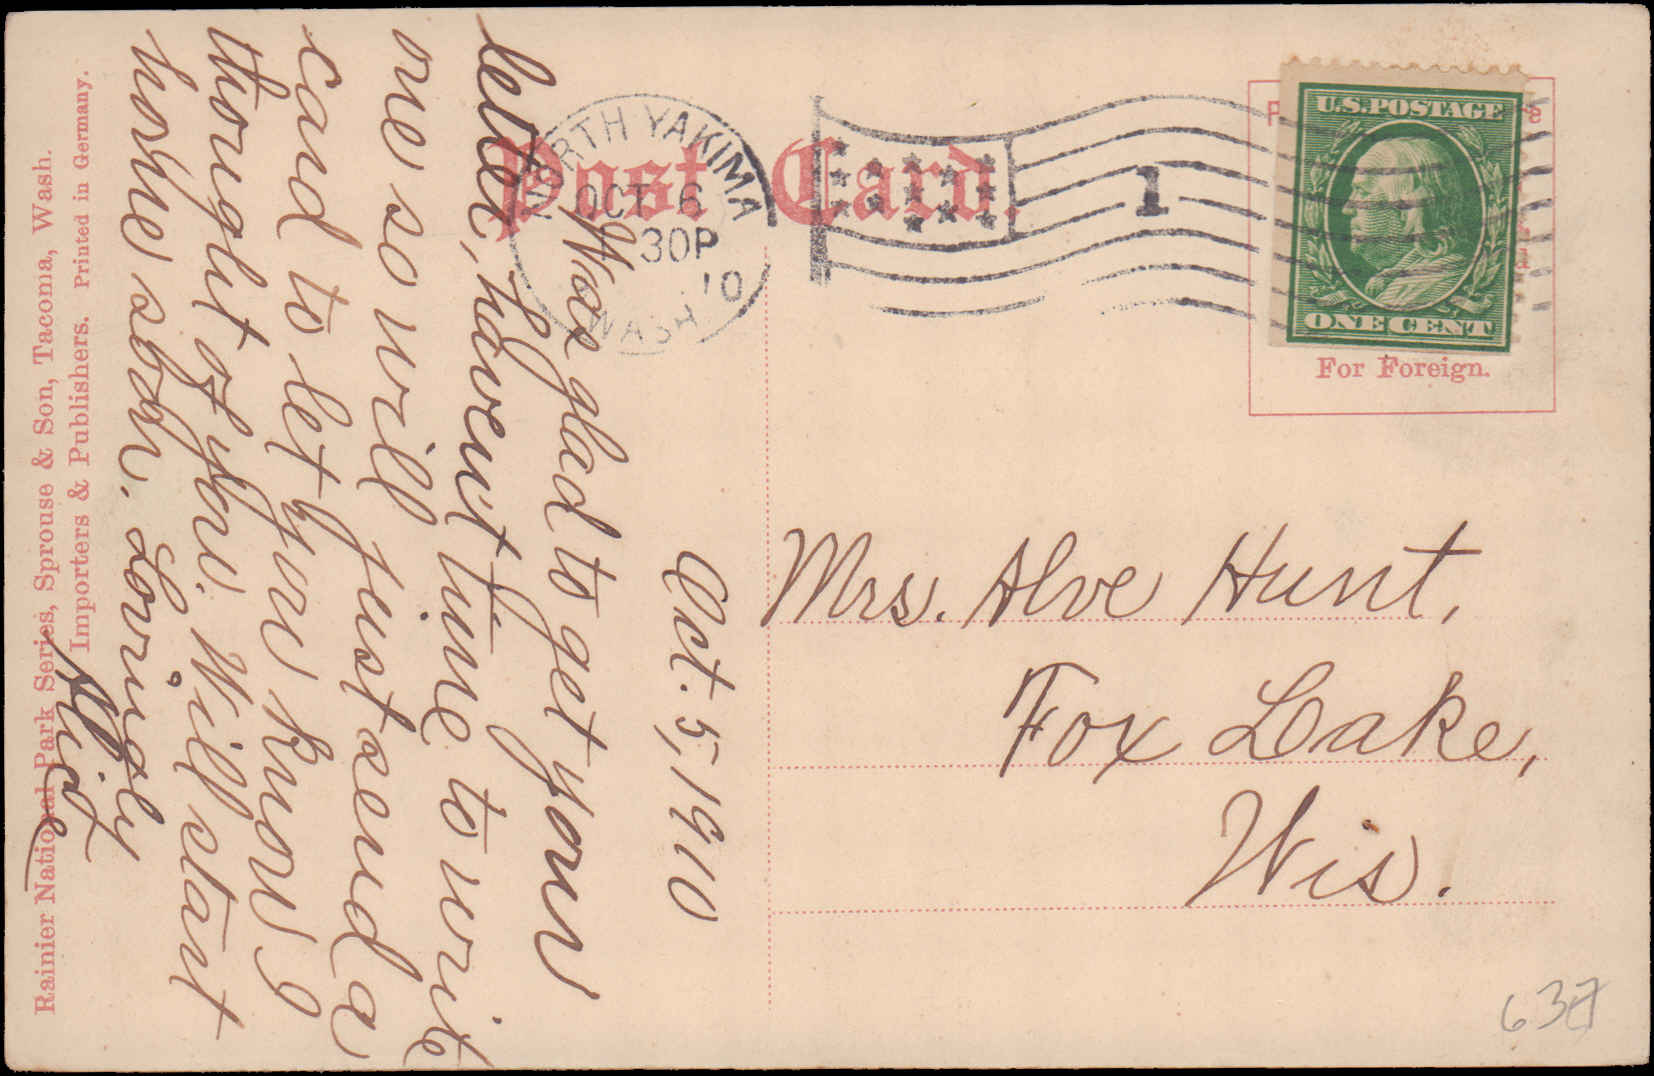 Post Card.
NORTH YAKIMA
OCT 6
30P
'10
WASH
1
U.S. POSTAGE
ONE CENT
For Foreign.
Oct. 5, 1910
Was glad to get your
letter, havent time to write
one so will just send a
card to let you know I
thought of you. Will start
home soon. Lovingly
Alice
Mrs. Alve Hunt,
Fox Lake,
Wis.
Rainier National Park Series, Sprouse & Son, Tacoma, Wash.
Importers & Publishers. Printed in Germany.
637